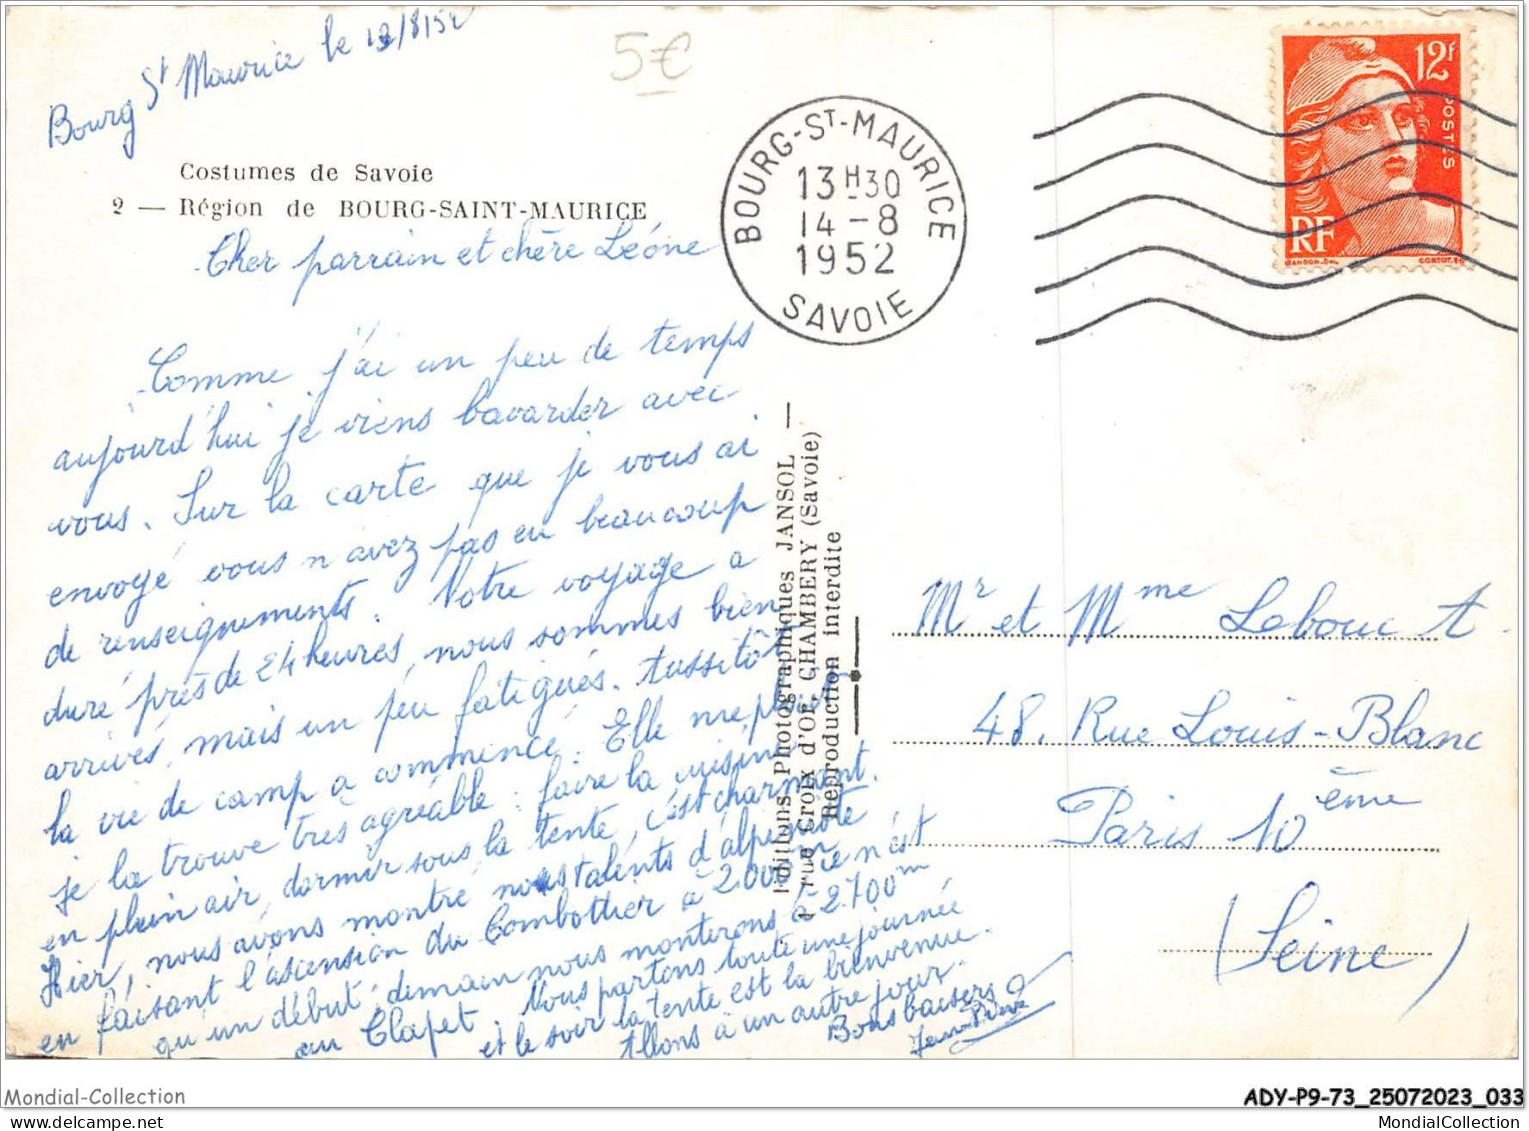 Bourg St Maurice le 13/8/52
5€
Costumes de Savoie
2 — Région de BOURG-SAINT-MAURICE
BOURG-ST-MAURICE
13H30
14-8
1952
SAVOIE
12F
POSTES
RF
GANDON.DEL.
CORTOT.SC
Cher parrain et chère Léone
Comme j'ai un peu de temps
aujourd'hui je viens bavarder avec
vous. Sur la carte que je vous ai
envoyé vous n'avez pas eu beaucoup
de renseignements. Notre voyage a
duré près de 24 heures, nous sommes bien
arrivés, mais un peu fatigués. Aussitôt
la vie de camp a commencé. Elle me plaît,
je la trouve très agréable : faire la cuisine
en plein air, dormir sous la tente, c'est charmant.
Hier, nous avons montré nos talents d'alpiniste
en faisant l'ascension du Combottier à 2.000m, ce n'est
qu'un début, demain nous monterons à 2.700m
au Clapet. Nous partons toute une journée
et le soir la tente est la bienvenue.
Allons à un autre jour.
Bons baisers
Jean-Pierre
Editions Photographiques JANSOL —
1 rue Croix d'Or CHAMBERY (Savoie)
Reproduction interdite
Mr et Mme Lebouc A.
48, Rue Louis-Blanc
Paris 10ème
(Seine)
Mondial-Collection
ADY-P9-73_25072023_033
MondialCollection